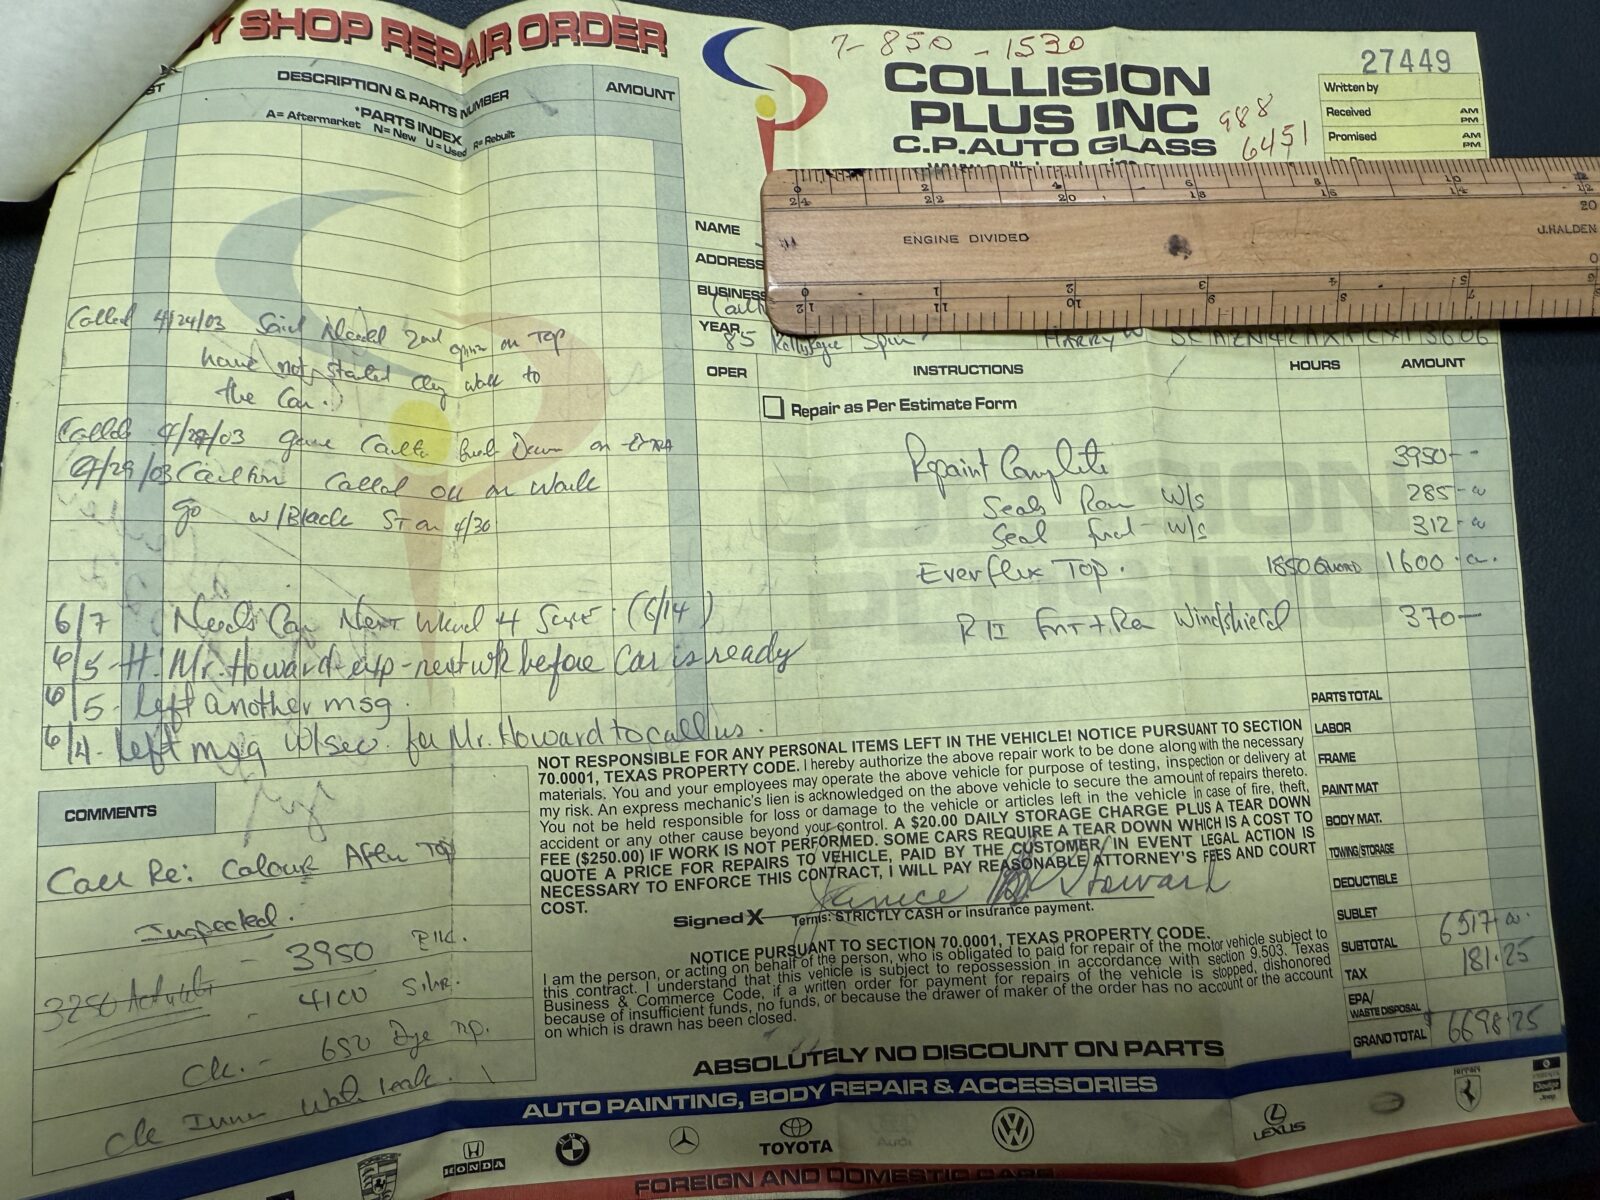 SHOP REPAIR ORDER
DESCRIPTION & PARTS NUMBER
AMOUNT
*PARTS INDEX
A= Aftermarket N= New U= Used R= Rebuilt
Called 4/24/03 Said Need 2nd on Top
have not started any work to
the Car.
Called 4/28/03 gave Down on
4/29/03 Called OK on Work
go w/Black ST on 4/30
6/7 Needs Car Next Wknd 4 Sure (6/14)
6/5 - Mr. Howard - exp - next wk before Car is ready
6/5 - left another msg.
6/4 - left msg w/sec. for Mr. Howard to call us.
COMMENTS
Call Re: Colour After Top
Inspected.
- 3950 Blk.
3250
- 4100 Silvr.
Ck. - 650 Dye
Ck Inner
7- 850 - 1530
COLLISION
PLUS INC
C.P. AUTO GLASS
988
6451
27449
Written by
Received AM PM
Promised AM PM
0 2 4 6 8 10 12
24 22 20 18 16 14
20
ENGINE DIVIDED
J.HALDEN
0
12 11 10 9 8 7 6
NAME
ADDRESS
BUSINESS
YEAR
85 Spur HARRY W SCAZN42AXFCX13606
OPER
INSTRUCTIONS
HOURS
AMOUNT
Repair as Per Estimate Form
Repaint Complete 3950--
Seals Rear W/S 285-
Seal frnt W/S 312-
Everflex Top. 1850 1600.
R+I Fnt + Rea Windshield 370-
PARTS TOTAL
LABOR
FRAME
PAINT MAT
BODY MAT.
TOWING/STORAGE
DEDUCTIBLE
SUBLET
SUBTOTAL 6517
TAX 181.25
EPA/
WASTE DISPOSAL
GRAND TOTAL $6698.25
NOT RESPONSIBLE FOR ANY PERSONAL ITEMS LEFT IN THE VEHICLE! NOTICE PURSUANT TO SECTION
70.0001, TEXAS PROPERTY CODE. I hereby authorize the above repair work to be done along with the necessary
materials. You and your employees may operate the above vehicle for purpose of testing, inspection or delivery at
my risk. An express mechanic's lien is acknowledged on the above vehicle to secure the amount of repairs thereto.
You not be held responsible for loss or damage to the vehicle or articles left in the vehicle in case of fire, theft,
accident or any other cause beyond your control. A $20.00 DAILY STORAGE CHARGE PLUS A TEAR DOWN
FEE ($250.00) IF WORK IS NOT PERFORMED. SOME CARS REQUIRE A TEAR DOWN WHICH IS A COST TO
QUOTE A PRICE FOR REPAIRS TO VEHICLE, PAID BY THE CUSTOMER/ IN EVENT LEGAL ACTION IS
NECESSARY TO ENFORCE THIS CONTRACT, I WILL PAY REASONABLE ATTORNEY'S FEES AND COURT
COST.
Signed X Janice Howard
Terms: STRICTLY CASH or insurance payment.
NOTICE PURSUANT TO SECTION 70.0001, TEXAS PROPERTY CODE.
I am the person, or acting on behalf of the person, who is obligated to paid for repair of the motor vehicle subject to
this contract. I understand that this vehicle is subject to repossession in accordance with section 9.503, Texas
Business & Commerce Code, if a written order for payment for repairs of the vehicle is stopped, dishonored
because of insufficient funds, no funds, or because the drawer of maker of the order has no account or the account
on which is drawn has been closed.
ABSOLUTELY NO DISCOUNT ON PARTS
AUTO PAINTING, BODY REPAIR & ACCESSORIES
HONDA
BMW
TOYOTA
Audi
LEXUS
Ferrari
Dodge
Jeep
FOREIGN AND DOMESTIC CARS